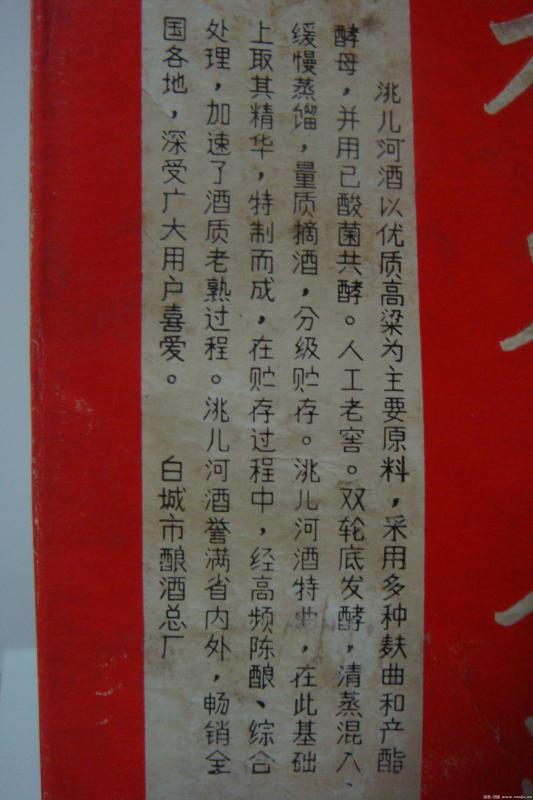 洮儿河酒以优质高粱为主要原料，采用多种麸曲和产酯
酵母，并用己酸菌共酵。人工老窖。双轮底发酵，清蒸混入、
缓慢蒸馏，量质摘酒，分级贮存。洮儿河酒特曲，在此基础
上取其精华，特制而成，在贮存过程中，经高频陈酿、综合
处理，加速了酒质老熟过程。洮儿河酒誉满省内外，畅销全
国各地，深受广大用户喜爱。
白城市酿酒总厂